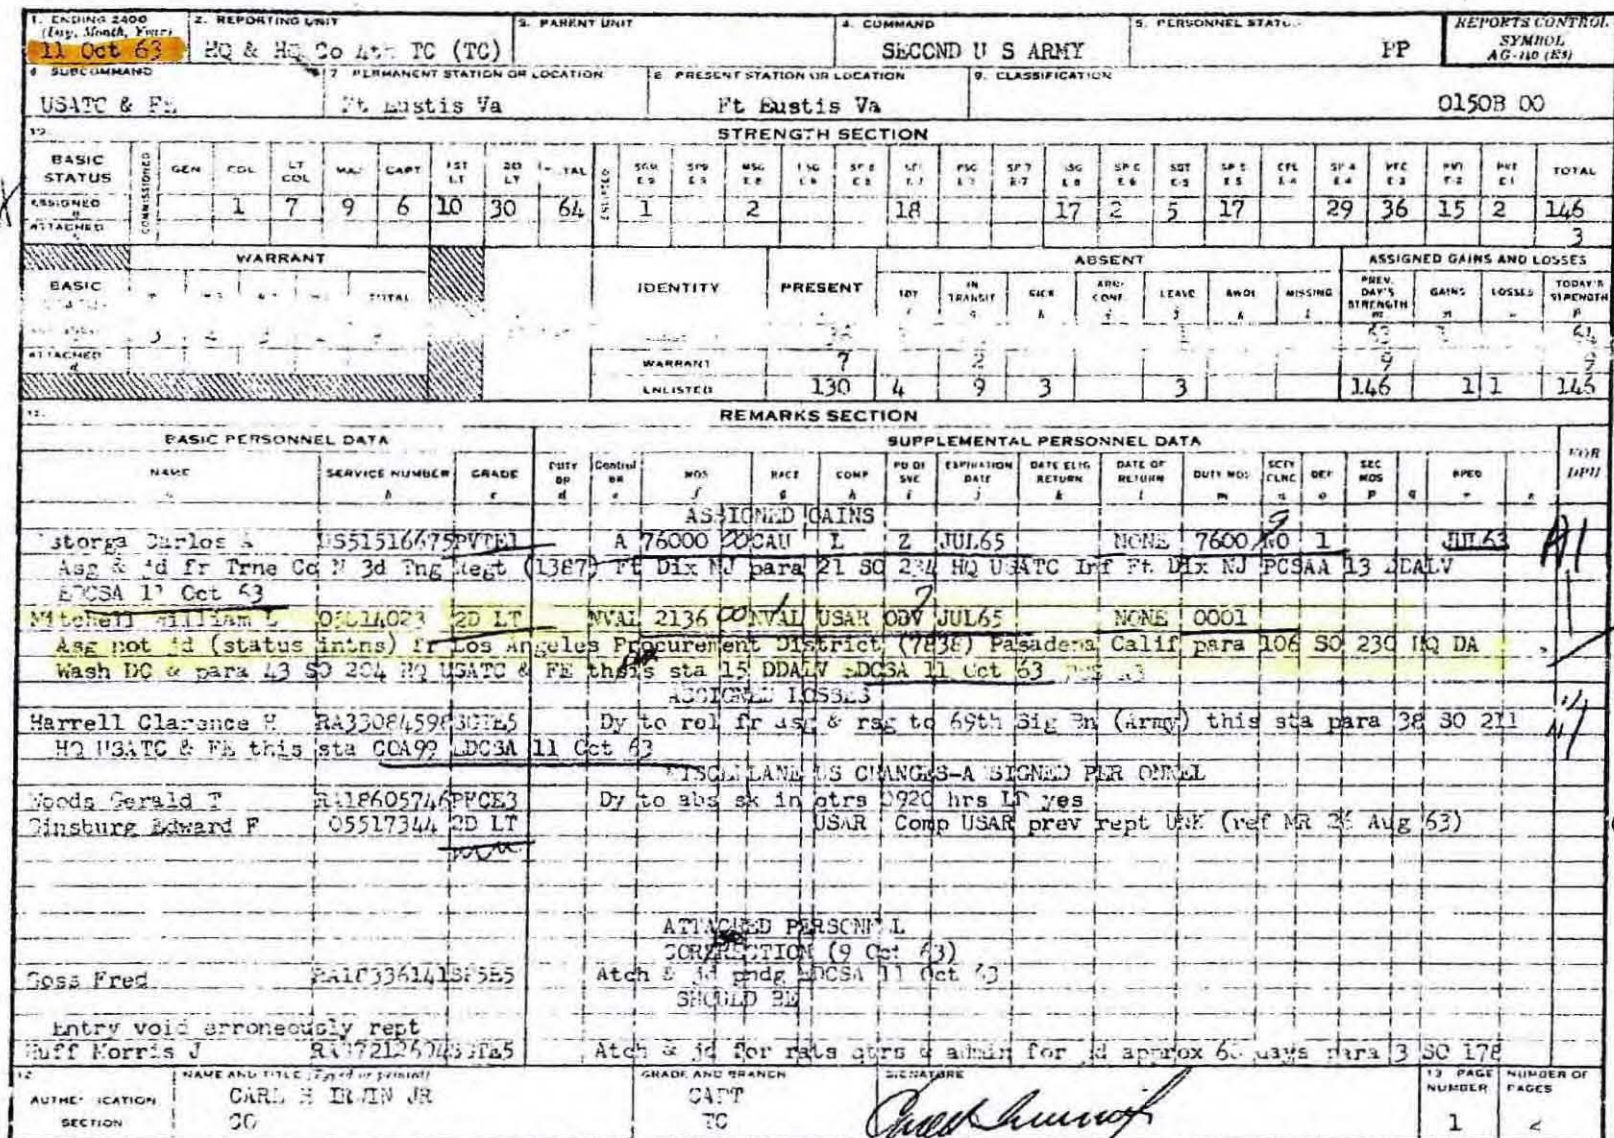 1. ENDING 2400 (Day, Month, Year) 2. REPORTING UNIT 3. PARENT UNIT 4. COMMAND 5. PERSONNEL REPORTS CONTROL SYMBOL
11 Oct 63 HQ & HQ Co 4th TC (TC) SECOND U S ARMY PP AG-140 (R5)
6 SUBCOMMAND 7 PERMANENT STATION OR LOCATION 8 PRESENT STATION OR LOCATION 9. CLASSIFICATION
USATC & FE Ft Eustis Va Ft Eustis Va 0150B 00
STRENGTH SECTION
BASIC STATUS COMMISSIONED GEN COL LT COL MAJ CAPT 1ST LT 2D LT TOTAL ENLISTED SGM E9 SP9 E9 MSG E8 1SG E8 SP8 E8 SFC E7 PSG E7 SP7 E7 SSG E6 SP6 E6 SGT E5 SP5 E5 CPL E4 SP4 E4 PFC E3 PVT E2 PVT E1 TOTAL
ASSIGNED 1 7 9 6 10 30 64 1 2 18 17 2 5 17 29 36 15 2 146
ATTACHED 3
WARRANT IDENTITY PRESENT ABSENT ASSIGNED GAINS AND LOSSES
BASIC TOTAL TDY IN TRANSIT SICK ARR/CONF LEAVE AWOL MISSING PREV. DAY'S STRENGTH GAINS LOSSES TODAY'S STRENGTH
ATTACHED WARRANT 7 2 9 9
ENLISTED 130 4 9 3 3 146 1 1 146
REMARKS SECTION
BASIC PERSONNEL DATA SUPPLEMENTAL PERSONNEL DATA FOR DPU
NAME SERVICE NUMBER GRADE DUTY BR Control BR MOS RACE COMP PD OF SVC EXPIRATION DATE DATE ELIG RETURN DATE OF RETURN DUTY MOS SCTY CLNC DEP SEC MOS BPED
ASSIGNED GAINS
Astorga Carlos A US51516675 PVTE1 A 76000 00 CAU L 2 JUL65 NONE 7600 1 JUL63
Asg & jd fr Trne Co N 3d Tng Regt (1387) Ft Dix NJ para 21 SO 234 HQ USATC Inf Ft Dix NJ PCSAA 13 DDALV
EDCSA 11 Oct 63
Mitchell William L 2D LT NVAL 2136 00 NVAL USAR OBV JUL65 NONE 0001
Asg not jd (status intns) fr Los Angeles Procurement District (7838) Pasadena Calif para 106 SO 230 HQ DA
Wash DC & para 43 SO 204 HQ USATC & FE this sta 15 DDALV EDCSA 11 Oct 63
ASSIGNED LOSSES
Harrell Clarence H RA33084598 SGTE5 Dy to rel fr asg & rsg to 69th Sig Bn (Army) this sta para 38 SO 211
HQ USATC & FE this sta COA99 EDCSA 11 Oct 63
MISCELLANEOUS CHANGES-ASSIGNED PERSONNEL
Woods Gerald T RA18605746 PFCE3 Dy to abs sk in qtrs 0920 hrs LD yes
Ginsburg Edward F 05517344 2D LT USAR Comp USAR prev rept UNK (ref MR 26 Aug 63)
ATTACHED PERSONNEL
CORRECTION (9 Oct 63)
Goss Fred RA18336141 SP5E5 Atch & jd pndg EDCSA 11 Oct 63
SHOULD BE
Entry void erroneously rept
Huff Morris J SGTE5 Atch & jd for rats qtrs & admin for pd approx 60 days para 3 SO 178
12 NAME AND TITLE (Typed or printed) GRADE AND BRANCH SIGNATURE 13 PAGE NUMBER NUMBER OF PAGES
AUTHENTICATION SECTION CARL H IRWIN JR CAPT 1 2
CO TC